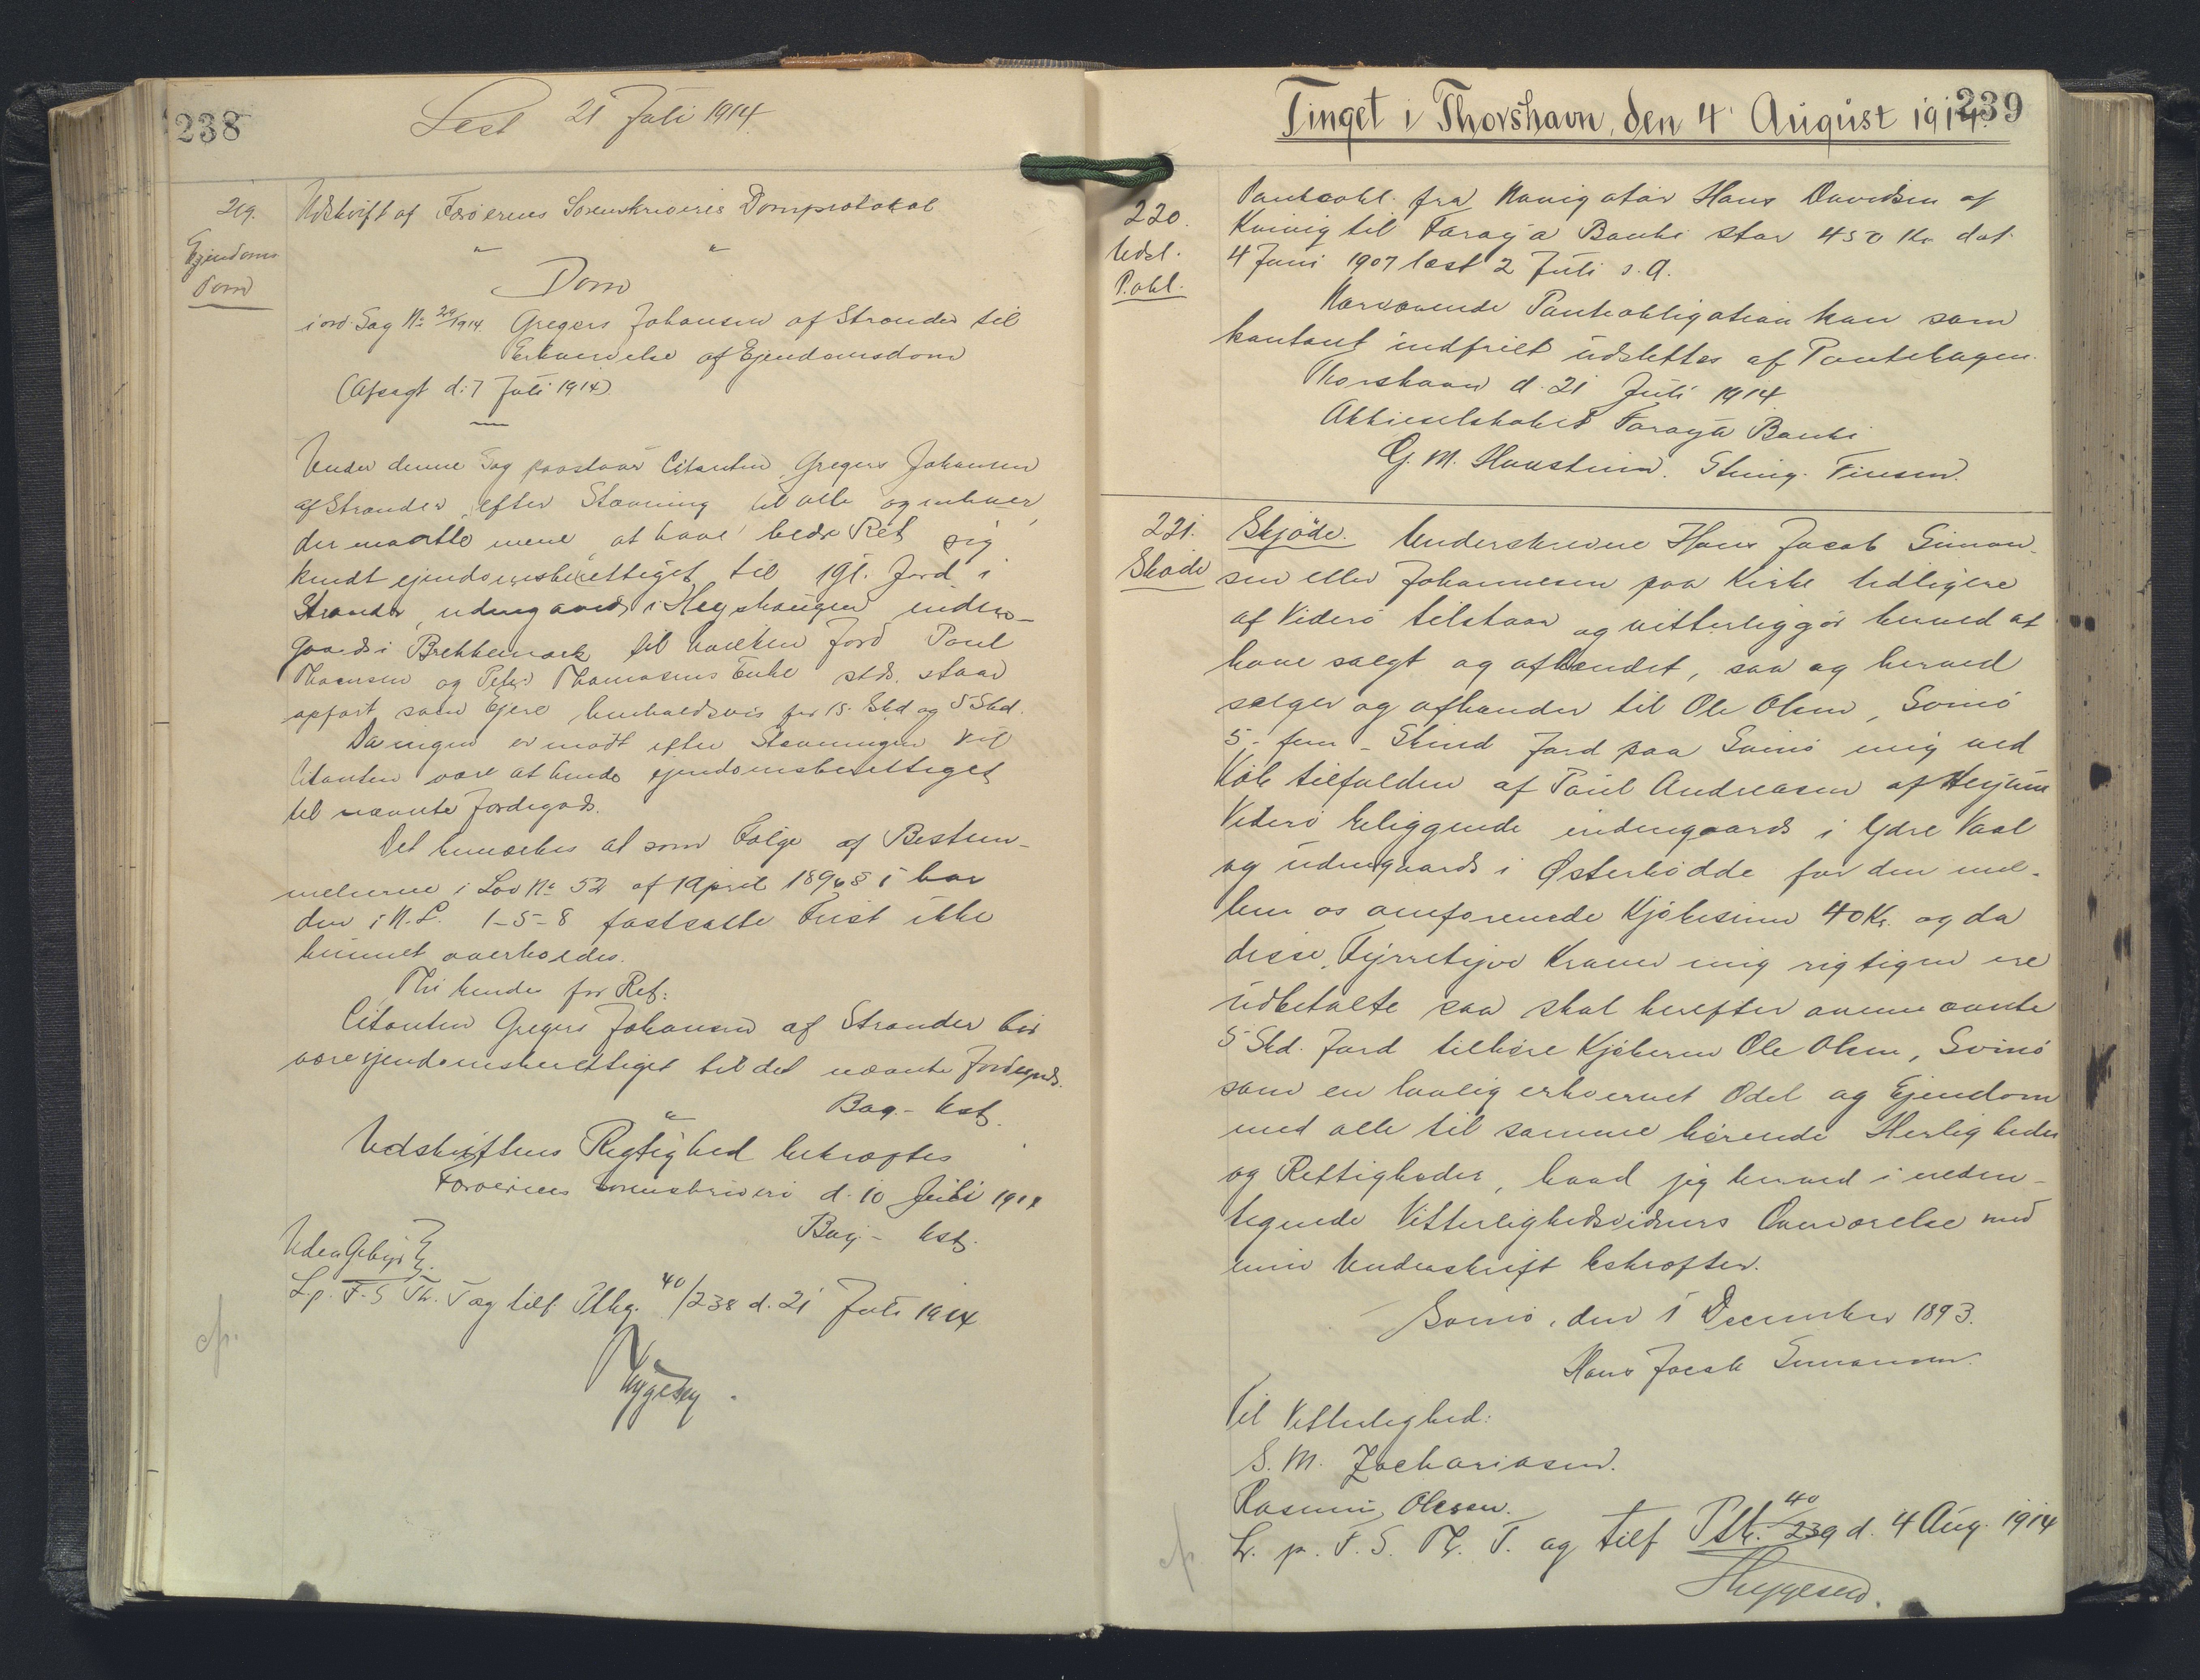 238
Læst 21 Juli 1914.
219.
Ejendoms
Dom
Udskrift af Færøernes Sorenskriveris Domprotokol
" "
Dom
i ord. Sag № 29/1914. Gregers Johansen af Strænder til
Erhvervelse af Ejendomsdom
(Afsagt d: 7 Juli 1914)
Under denne Sag paastaar Citanten, Gregers Johansen
af Strænder, efter Stævning til alle og enhver,
der maatte mene at have bedre Ret sig
kendt ejendomsberettiget til 1 Gl. Jord i
Strænder, udengaards i Hegshaugen inden-
gaards i Brekkemark til hvilken Jord Poul
Thomsen og Peter Thomasens Enke staar
opført som Ejere henholdsvis for 15 Skd og 5 Skd.
Da ingen er mødt efter Stævningen vil
Citanten være at kende ejendomsberettiget
til nævnte Jordegods.
Det bemærkes at som Følge af Bestem-
melserne i Lov № 52 af 1 April 1896 § 1 har
den i N. L. 1-5-8 fastsatte Frist ikke
kunnet overholdes.
Thi kendes for Ret:
Citanten Gregers Johansen af Strænder bør
være ejendomsberettiget til det nævnte Jordegods.
Bag. - kst.
"
Udskriftens Rigtighed bekræftes
Færøernes Sorenskriveri d. 10 Juli 1914
Bag - kst.
Uden Gebyr
L. p. F. S Th. T og tilf. Ptbg. 40/238 d. 21 Juli 1914
Thygesen.
Tinget i Thorshavn, den 4' August 1914.
239
220.
Udsl.
P.obl.
Panteobl. fra Navigatør Hans Davidsen af
Kvivig til Føroya Banki stor 450 Kr dat.
4 Juni 1907 læst 2 Juli s. A.
Nærværende Panteobligation kan som
kontant indfriet udslettes af Pantebogen.
Thorshavn d. 21 Juli 1914
Aktieselskabet Føroya Banki
G. M. Haustein. Stning. Finsen.
221.
Skøde
Skjöde. Underskrevne Hans Jacob Simon-
sen eller Johannesen paa Kirke tidligere
af Viderø tilstaar og vitterliggör herved at
have solgt og afhændet, saa og herved
sælger og afhænder til Ole Olsen, Svinø
5 - fem - Skind Jord paa Svinø mig ved
Köb tilfalden af Poul Andreasen af
Viderø beliggende indengaards i Ydre Vaal
og udengaards i Østerbødde for den mel-
lem os omforenede Kjöbesum 40 Kr. og da
disse Fyrretyve Kroner mig rigtigen ere
udbetalte saa skal herefter ovennævnte
5 Skd. Jord tilhøre Kjöberen Ole Olsen, Svinø
som en lovlig erhvervet Odel og Ejendom
med alle til samme hørende Herligheder
og Rettigheder, hvad jeg herved i neden-
tegnede Vitterlighedsvidners Overværelse med
min Underskrift bekræfter.
Svinø, den 1 December 1893.
Hans Jacob Simonsen.
Til Vitterlighed:
S. M. Zachariasen.
Rasmus Olesen.
L. p. F. S. Th. T. og tilf Ptb. 40/239 d. 4 Aug. 1914
Thygesen.